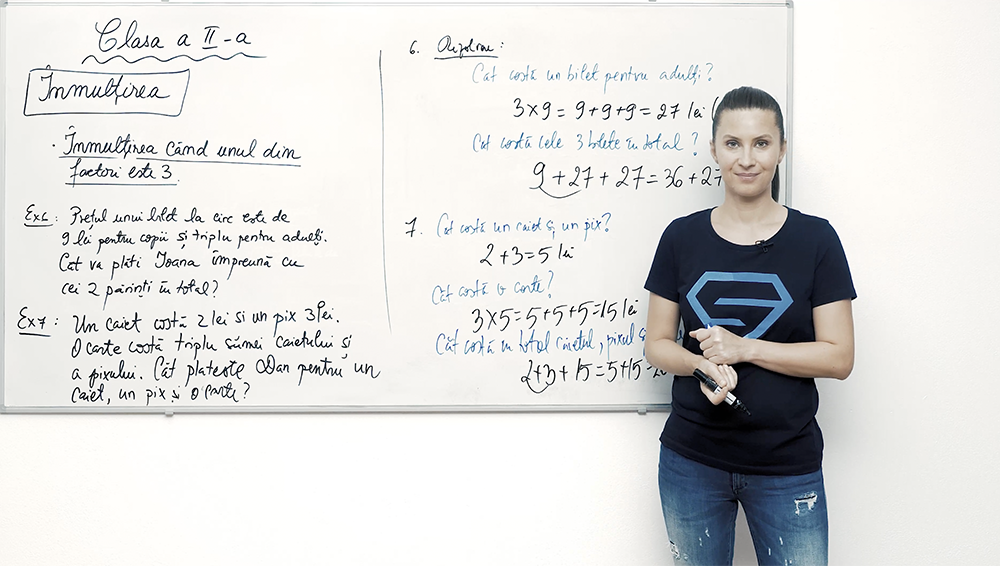 Clasa a II-a
Înmulțirea
· Înmulțirea când unul din
factori este 3.
Ex6: Prețul unui bilet la circ este de
9 lei pentru copii și triplu pentru adulți.
Cât va plăti Ioana împreună cu
cei 2 părinți în total?
Ex7: Un caiet costă 2 lei si un pix 3 lei.
O carte costă triplu sumei caietului și
a pixului. Cât platește Dan pentru un
caiet, un pix și o carte?
6. Rezolvare:
Cât costă un bilet pentru adulți?
3x9 = 9+9+9 = 27 lei (
Cât costă cele 3 bilete în total?
9+27+27=36+27
7. Cât costă un caiet și un pix?
2+3=5 lei
Cât costă o carte?
3x5=5+5+5=15 lei
Cât costă în total caietul, pixul
2+3+15=5+15=20